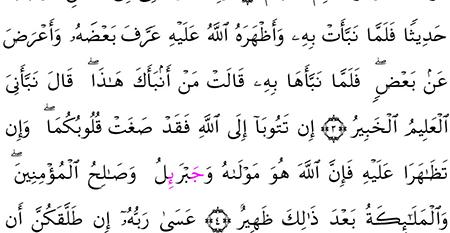 حَدِيثًا فَلَمَّا نَبَّأَتْ بِهِۦ وَأَظْهَرَهُ ٱللَّهُ عَلَيْهِ عَرَّفَ بَعْضَهُۥ وَأَعْرَضَ
عَنۢ بَعْضٍۖ فَلَمَّا نَبَّأَهَا بِهِۦ قَالَتْ مَنْ أَنۢبَأَكَ هَٰذَاۖ قَالَ نَبَّأَنِىَ
ٱلْعَلِيمُ ٱلْخَبِيرُ ﴿٣﴾ إِن تَتُوبَآ إِلَى ٱللَّهِ فَقَدْ صَغَتْ قُلُوبُكُمَاۖ وَإِن
تَظَٰهَرَا عَلَيْهِ فَإِنَّ ٱللَّهَ هُوَ مَوْلَىٰهُ وَجَبْرَئِلُ وَصَٰلِحُ ٱلْمُؤْمِنِينَۖ
وَٱلْمَلَٰٓئِكَةُ بَعْدَ ذَٰلِكَ ظَهِيرٌ ﴿٤﴾ عَسَىٰ رَبُّهُۥٓ إِن طَلَّقَكُنَّ أَن